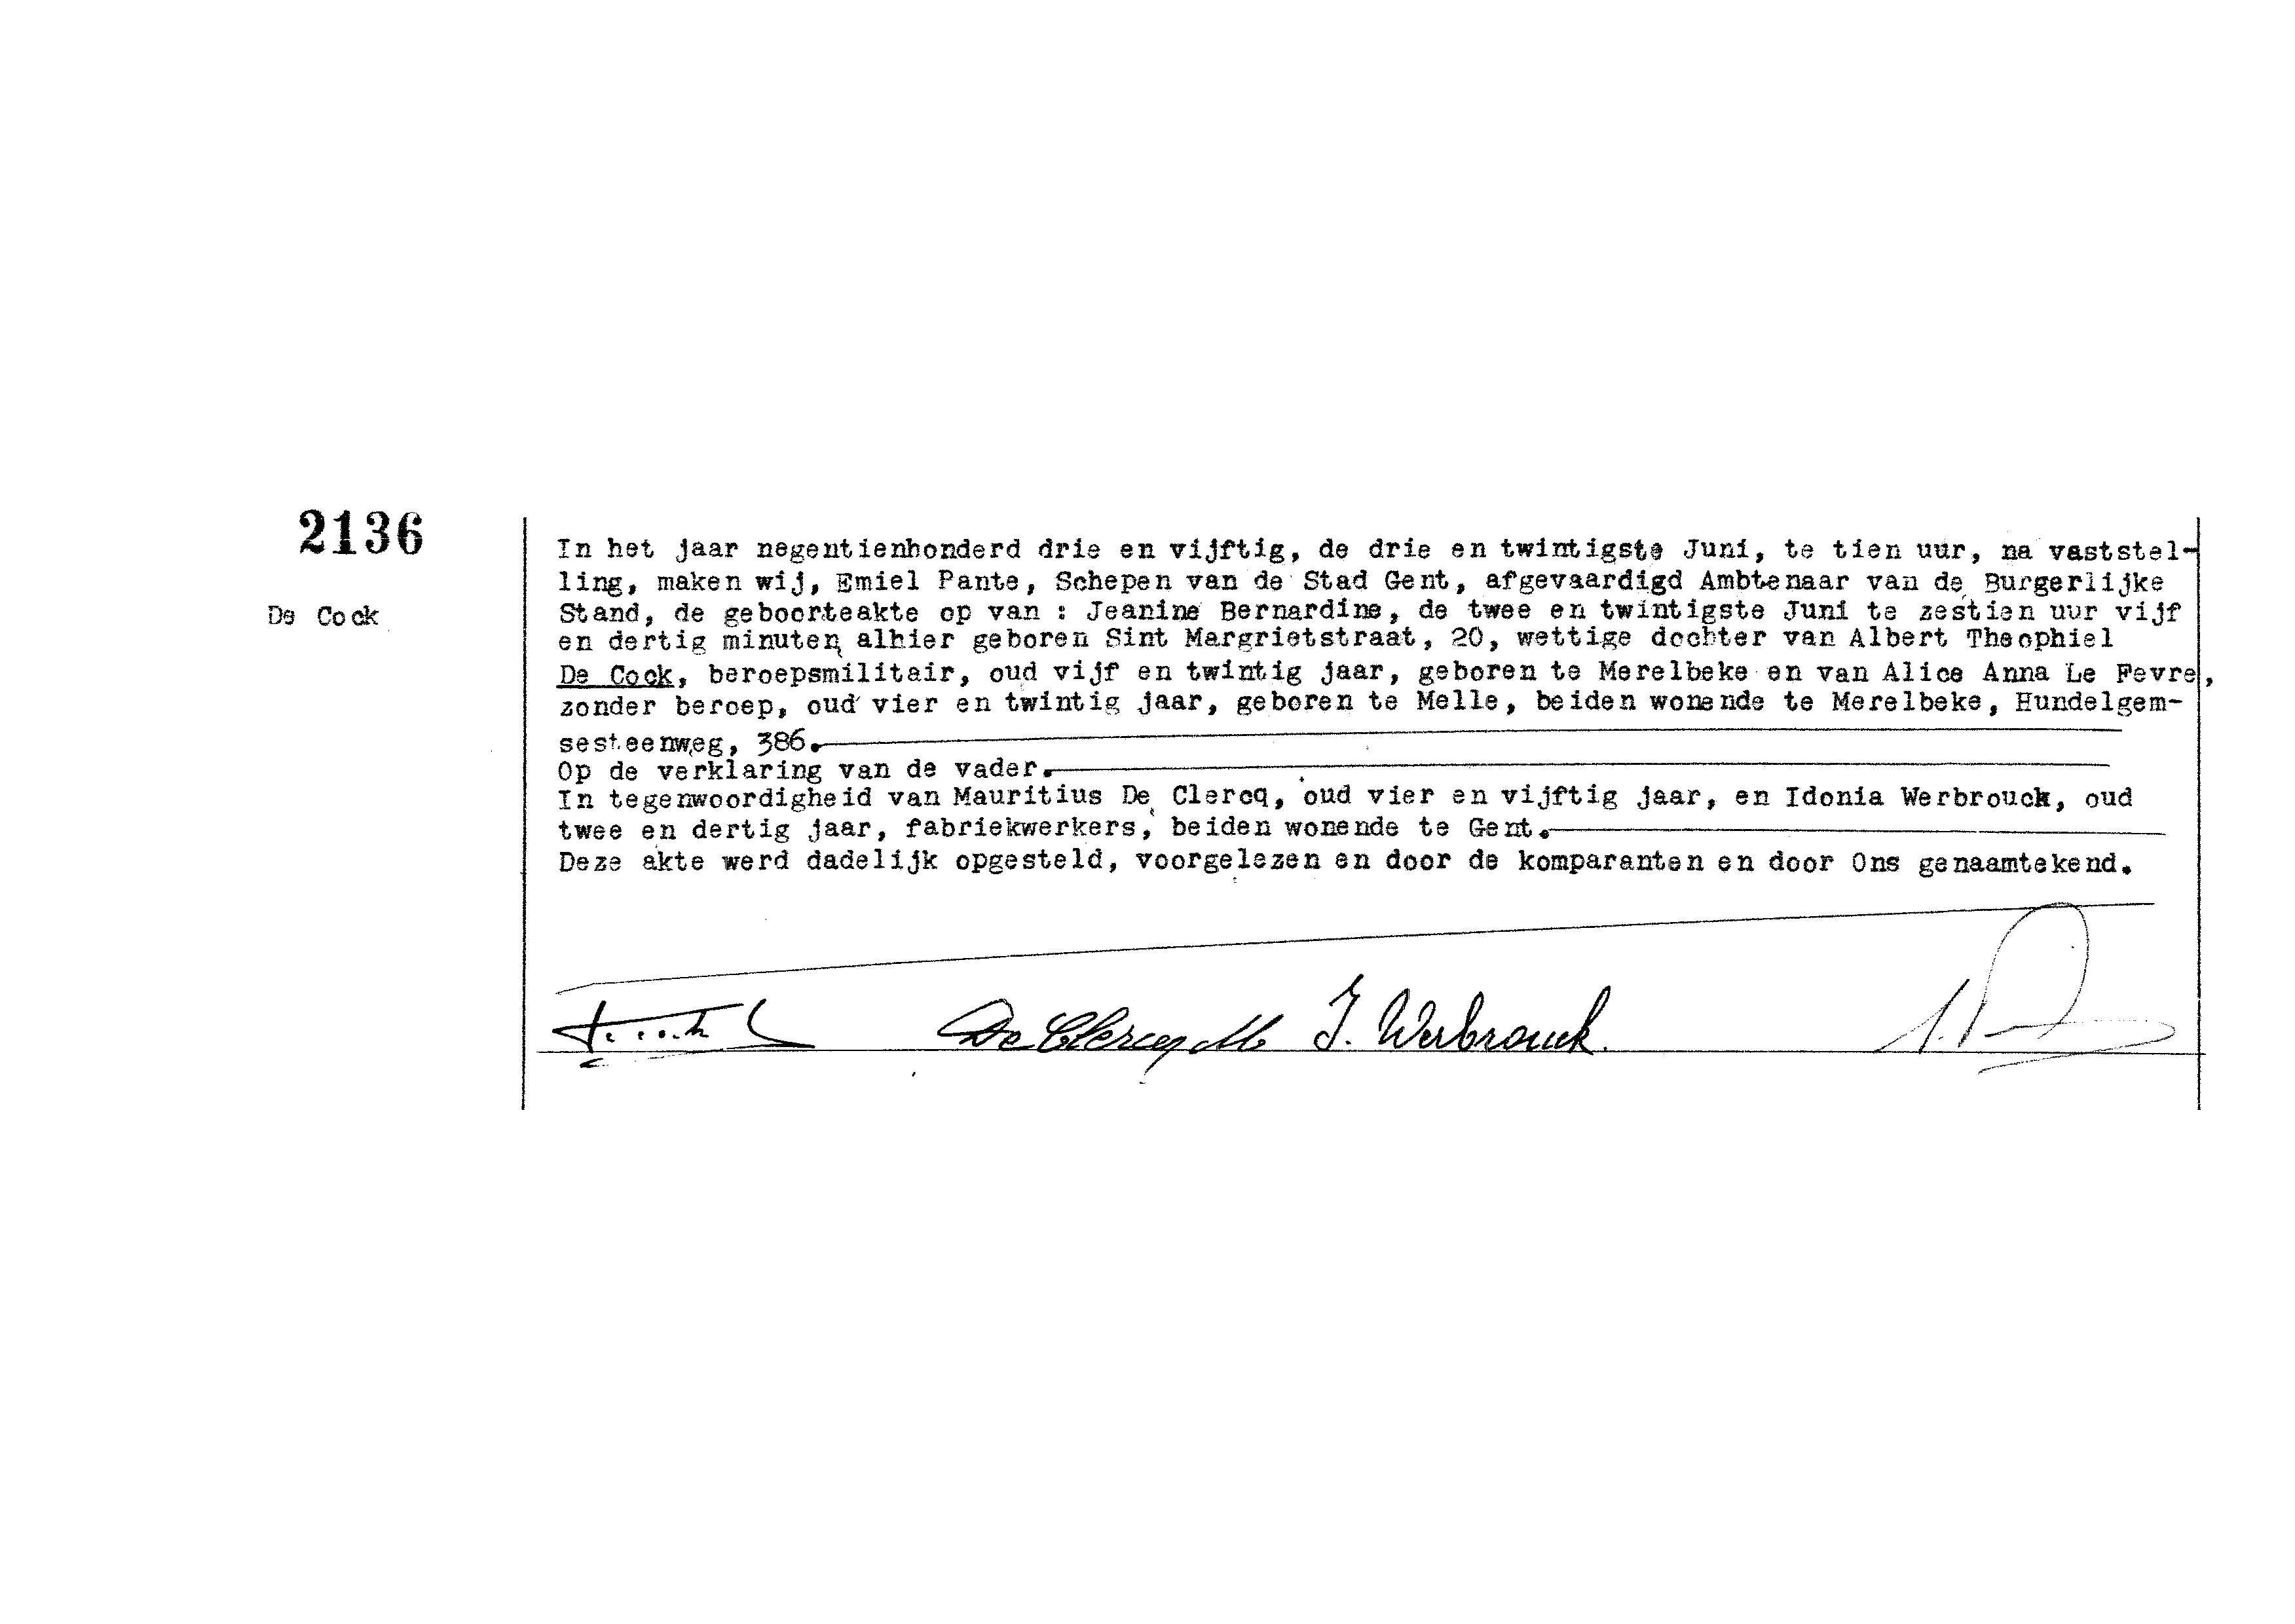 2136
De Cock
In het jaar negentienhonderd drie en vijftig, de drie en twintigste Juni, te tien uur, na vaststel-
ling, maken wij, Emiel Pante, Schepen van de Stad Gent, afgevaardigd Ambtenaar van de Burgerlijke
Stand, de geboorteakte op van : Jeanine Bernardine, de twee en twintigste Juni te zestien uur vijf
en dertig minuten alhier geboren Sint Margrietstraat, 20, wettige dochter van Albert Theophiel
De Cock, beroepsmilitair, oud vijf en twintig jaar, geboren te Merelbeke en van Alice Anna Le Fevre,
zonder beroep, oud vier en twintig jaar, geboren te Melle, beiden wonende te Merelbeke, Hundelgem-
sesteenweg, 386.
Op de verklaring van de vader.
In tegenwoordigheid van Mauritius De Clercq, oud vier en vijftig jaar, en Idonia Werbrouck, oud
twee en dertig jaar, fabriekwerkers, beiden wonende te Gent.
Deze akte werd dadelijk opgesteld, voorgelezen en door de komparanten en door Ons genaamtekend.
De Clercq M J. Werbrouck.